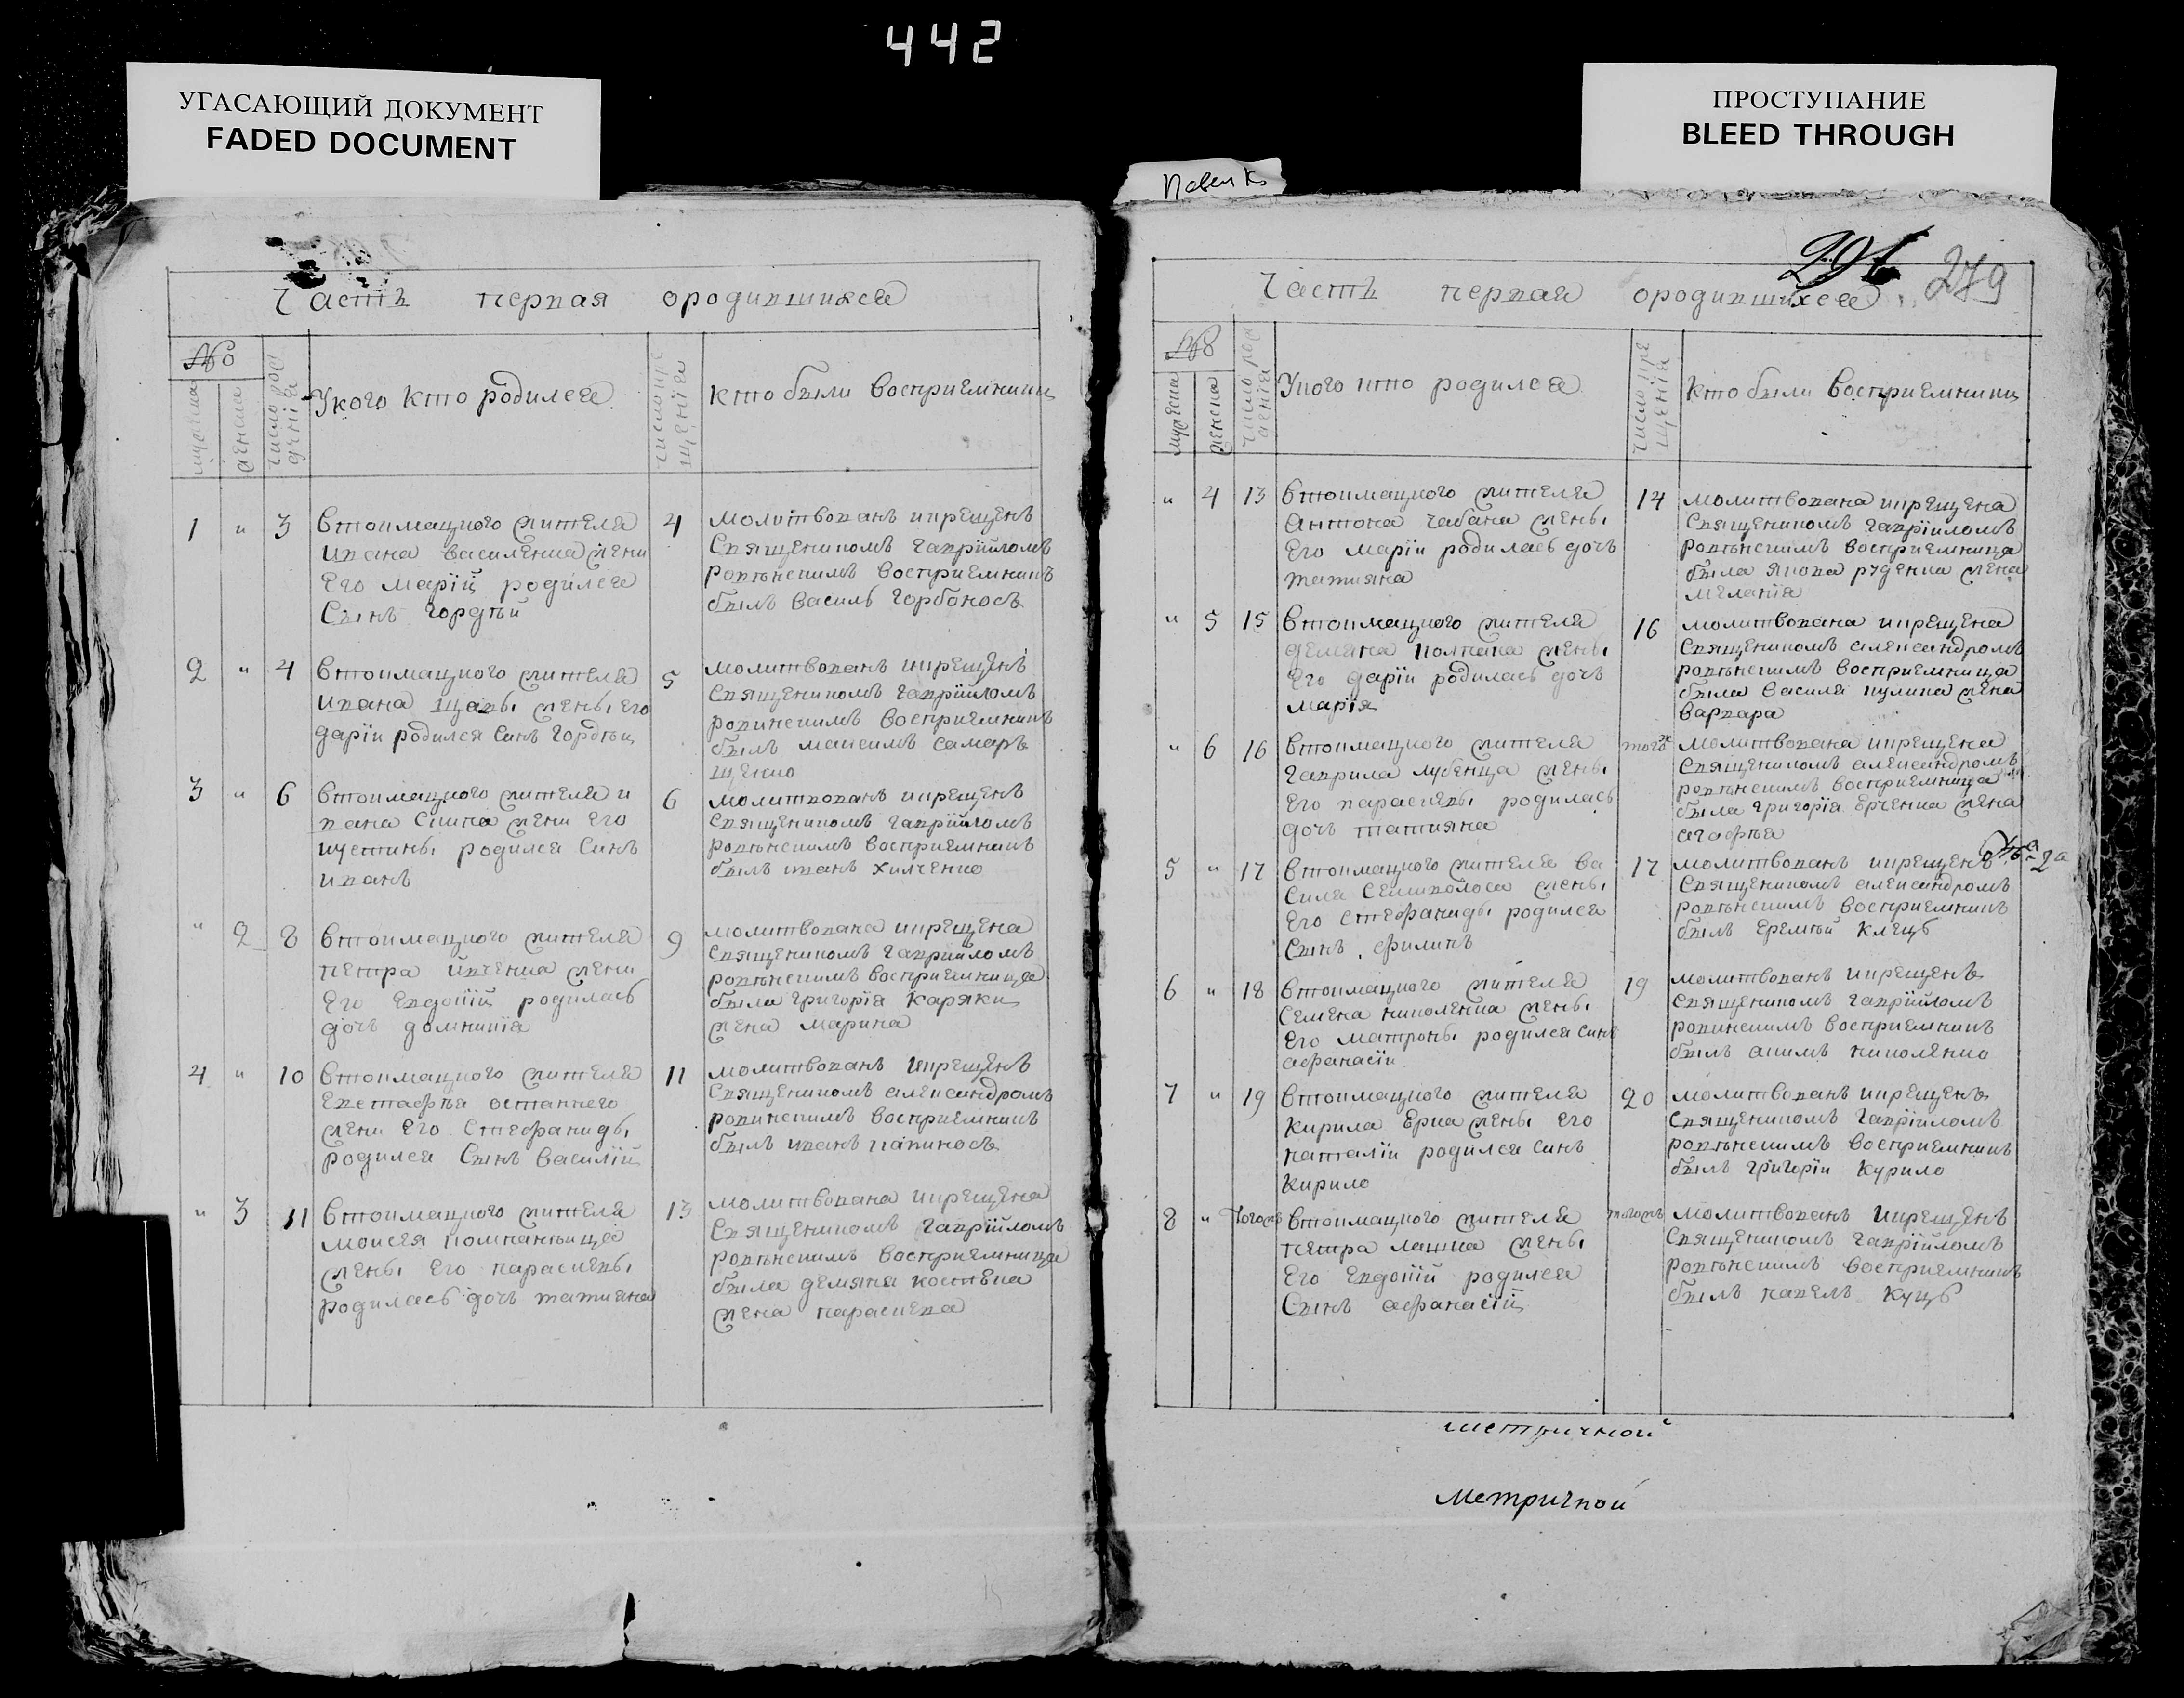 442
УГАСАЮЩИЙ ДОКУМЕНТ
FADED DOCUMENT
ПРОСТУПАНИЕ
BLEED THROUGH
279
Часть первая ородившихся
№
число рож
дения
Укого кто родился
число кре
щения
кто были восприемники
1 " 3 втоимацкого жителя
ивана василенка жени
его марій родился
Сынъ гордѣй
4 молитвованъ икрещенъ
Священикомъ гавріиломъ
ровѣнскимъ восприемникъ
былъ василь горбоносъ
2 " 4 втоимацкого жителя
ивана щавы жены его
даріи родился синъ гордѣй
5 молитвованъ икрещенъ
Священикомъ гавріиломъ
ровинскимъ восприемникъ
былъ максимъ самаръ
щенко
3 " 6 втоимацкого жителя и
вана жени его
иустины родился синъ
иванъ
6 молитвованъ икрещенъ
Священикомъ гавріиломъ
ровѣнскимъ восприемникъ
былъ иванъ хилченко
" 2 8 втоимацкого жителя
петра ивченка жени
его евдокій родилась
дочъ домникія
9 молитвована икрещена
Священикомъ гавріиломъ
ровѣнскимъ восприемница
была григорія каряки
жена марина
4 " 10 втоимацкого жителя
евстафѣя остапчего
жени его стефаниды
родился Сынъ василій
11 молитвованъ икрещенъ
Священикомъ александромъ
ровинскимъ восприемникъ
былъ иванъ папиносъ
" 3 11 втоимацкого жителя
моисея
жены его параскевы
родилась дочъ татияна
13 молитвована икрещена
Священикомъ гавріиломъ
ровѣнскимъ восприемница
была демяна костєва
жена параскева
Часть первая ородившихся
№
мужеска
женска
число рож
дения
Укого кто родился
число кре
щения
кто были восприемники
" 4 13 втоимацкого жителя
антона чабана жены
его маріи родилась дочъ
татияна
14 молитвована икрещена
Священикомъ гавріиломъ
ровѣнскимъ восприемница
была якова руденка жена
меланія
" 5 15 втоимацкого жителя
демяна колпака жены
его даріи родилась дочъ
марія
16 молитвована икрещена
Священикомъ александромъ
ровѣнскимъ восприемница
была василя кулика жена
варвара
" 6 16 втоимацкого жителя
гаврила лубенца жены
его параскевы родилась
дочъ татияна
того ж молитвована икрещена
Священикомъ александромъ
ровѣнскимъ восприемница
была григорія ерченка жена
агафѣя
5 " 17 втоимацкого жителя ва
силя семиволоса жены
его стефаниды родился
Сынъ филипъ
17 молитвованъ икрещенъ
Священикомъ александромъ
ровѣнскимъ восприемникъ
былъ еремѣй клецъ
6 " 18 втоимацкого жителя
Семена николенка жены
его матроны родился синъ
афанасіи
19 молитвованъ икрещенъ
Священикомъ гавріиломъ
ровинскимъ восприемникъ
былъ акимъ николенко
7 " 19 втоимацкого жителя
кирила ерка жены его
наталіи родился синъ
кирило
20 молитвованъ икрещенъ
Священикомъ гавріиломъ
ровѣнскимъ восприемникъ
былъ григоріи курило
8 " тогожъ втоимацкого жителя
петра лашка жены
его евдокій родился
Сынъ афанасій
тогожъ молитвованъ икрещенъ
Священикомъ гавріиломъ
ровѣнскимъ восприемникъ
былъ павелъ куцъ
метричной
метричной